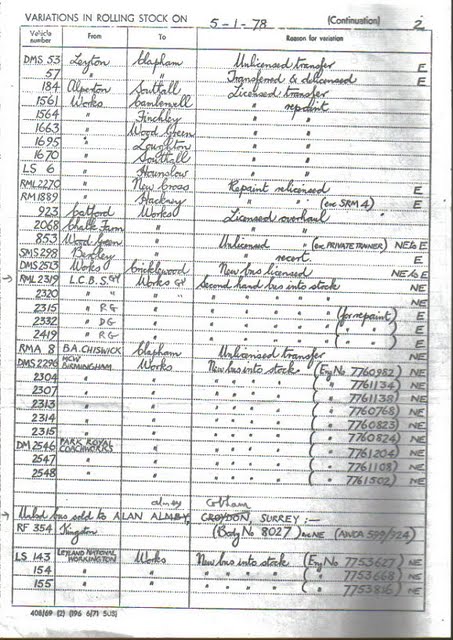 VARIATIONS IN ROLLING STOCK ON 5-1-78 (Continuation) 2
Vehicle number From To Reason for variation
DMS 53 Leyton Clapham Unlicensed transfer E
57 " " Transferred & delicensed E
184 Alperton Southall Licensed transfer
1561 Works Camberwell " repaint
1564 " Finchley " "
1663 " Wood Green " "
1695 " Loughton " "
1670 " Southall " "
LS 6 " Hounslow " "
RML2270 " New Cross Repaint relicensed E
RM1889 " Hackney " " (exc SRM 4) E
923 Catford Works Licensed overhaul
2068 Chalk Farm " " "
853 Wood Green " Unlicensed " (ex PRIVATE TRAINER) NE to E
SMS298 Bexley " " recert. E
DMS2513 Works Cricklewood New bus licensed NE to E
RML2319 L.C.B.S. GR Works GR Second hand bus into stock NE
2320 " " " " " " " NE
2315 " RG " " " " " (for repaint) E
2332 " DG " " " " " ( " " ) E
2419 " RG " " " " " ( " " ) E
RMA 8 B.A. CHISWICK Clapham Unlicensed transfer NE
DMS2290 MCW BIRMINGHAM Works New bus into stock (Eng No 7760982) NE
2304 " " " " " " ( " 7761134) NE
2307 " " " " " " ( " 7761138) NE
2313 " " " " " " ( " 7760768) NE
2314 " " " " " " ( " 7760823) NE
2315 " " " " " " ( " 7760824) NE
DM 2546 PARK ROYAL COACHWORKS " " " " " ( " 7761204) NE
2547 " " " " " " ( " 7761108) NE
2548 " " " " " " ( " 7761502) NE
Cobham
bus sold to ALAN ALMEY, CROYDON, SURREY :—
RF 354 Kington (Body No 8027) NE (AWCA 599/924)
LS 143 LEYLAND NATIONAL WORKINGTON Works New bus into stock (Eng No 7753627) NE
154 " " " " " " ( " 7753668) NE
155 " " " " " " ( " 7753816) NE
408/69 (2) (B96 6/71 5US)